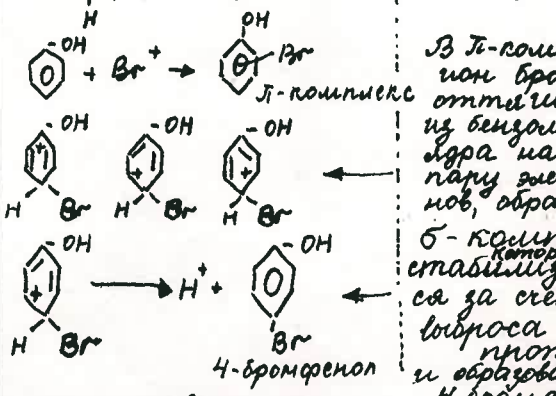 H
-OH
+ Br⁺ →
OH
Br
П-комплекс
-OH
-OH
-OH
+
+
+
H Br
H Br
H Br
-OH
+
H Br
→ H⁺ +
-OH
Br
4-бромфенол
В П-ком
ион бро
оттяги
из бензол
ядра на
пару эле
нов, обра
б-комп
котор
стабилиз
ся за счё
выброса
прот
и образова